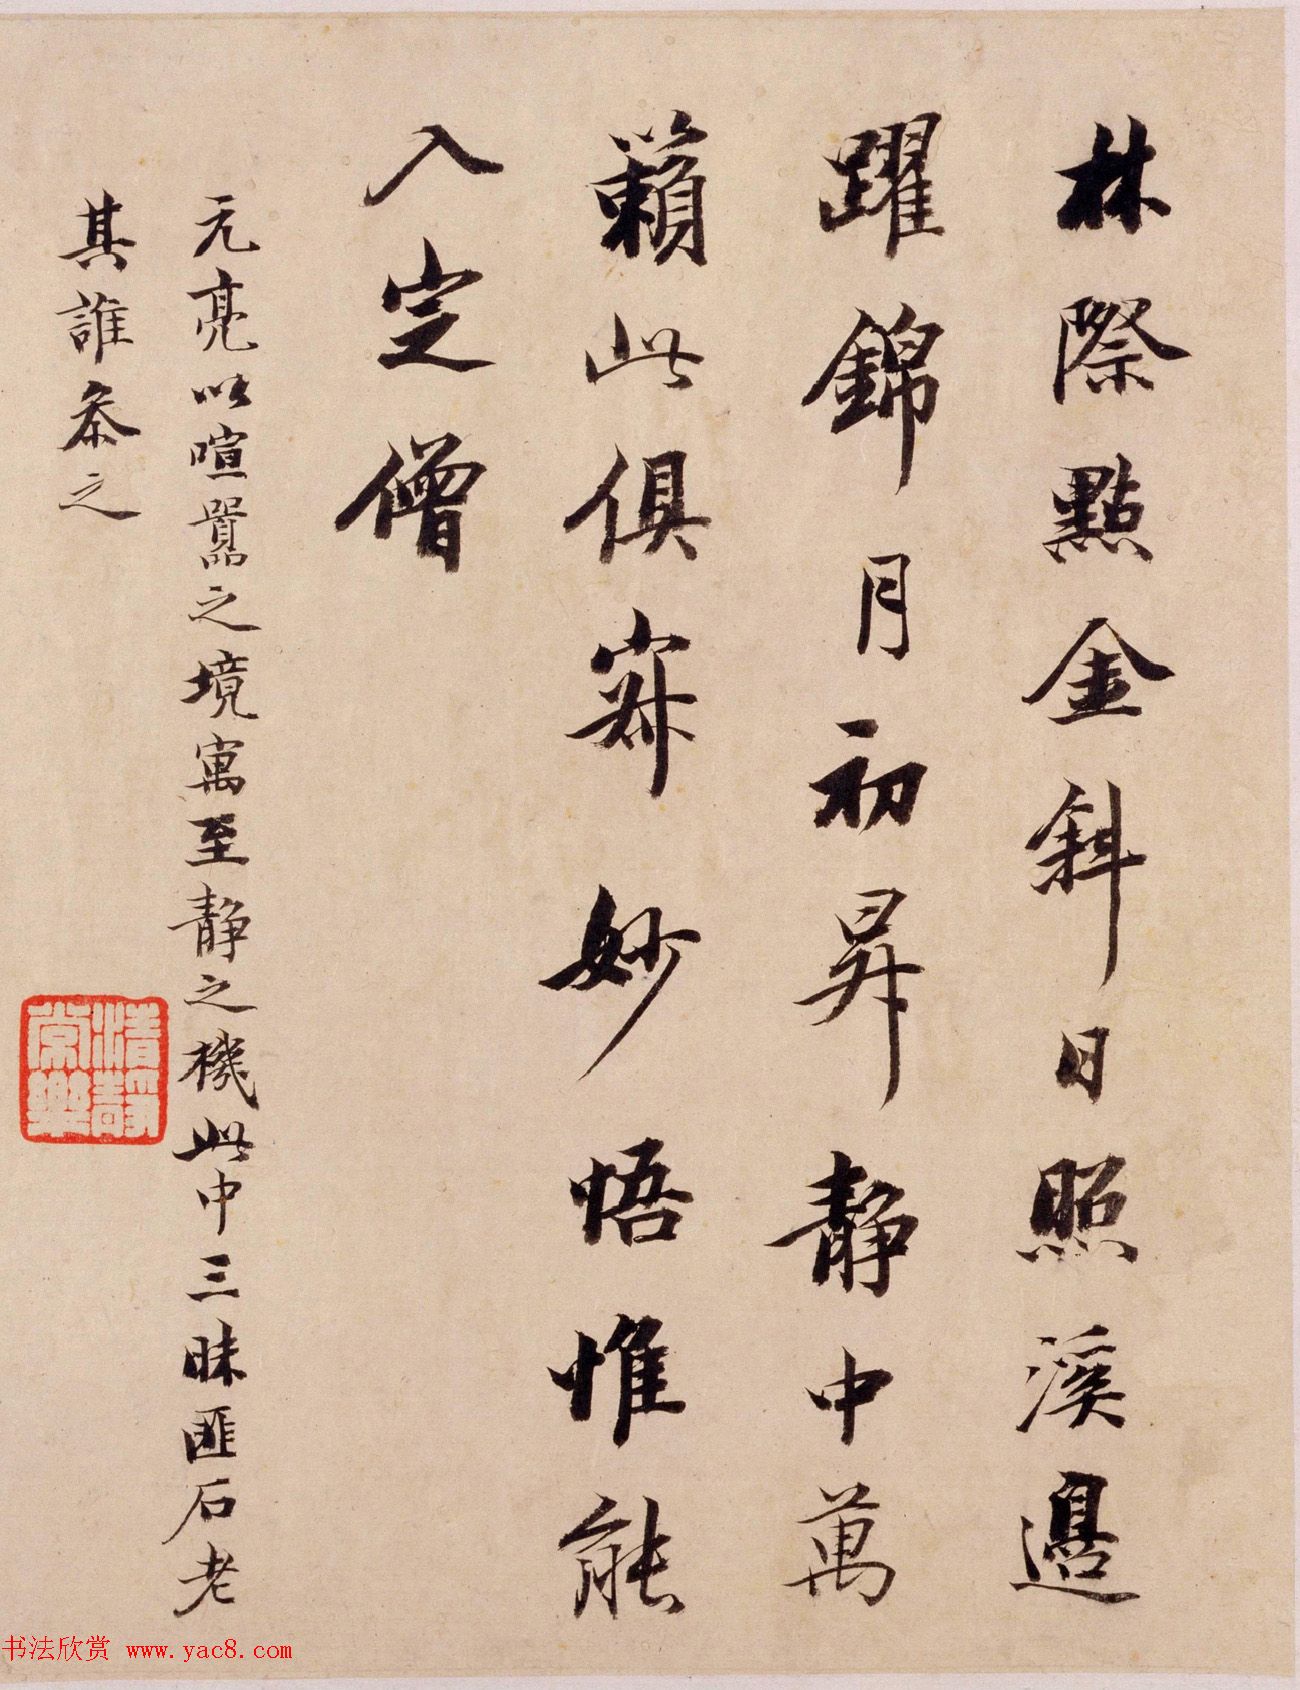 林際點金斜日照溪邊
躍錦月初昇靜中萬
籟此俱寂妙悟惟能
入定僧
元亮以喧囂之境寓至靜之機此中三昧匪石老
其誰參之
清靜常樂
书法欣赏 www.yac8.com